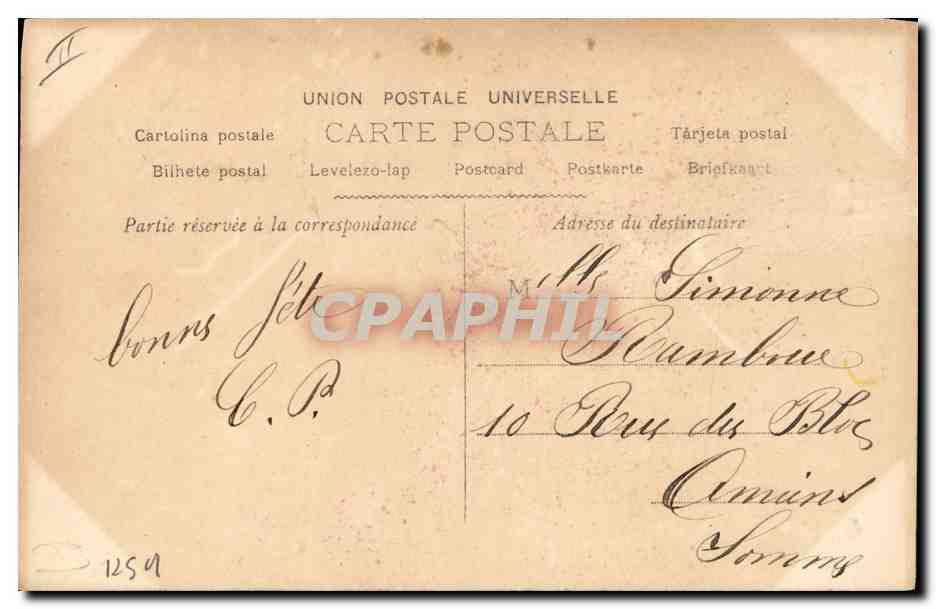 II
UNION POSTALE UNIVERSELLE
Cartolina postale CARTE POSTALE Tárjeta postal
Bilhete postal Levelezo-lap Postcard Postkarte Briefkaart
Partie réservée à la correspondance
Adresse du destinataire
bonne fête
C. P.
CPAPHIL
Mlle Simonne
10 Rue des Bloc
Amiens
Somme
1259